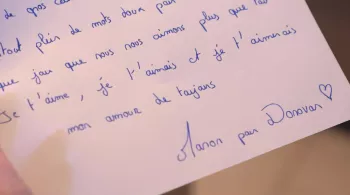 de gros
tout plein de mots doux par
que jour que nous nous aimons plus que
Je t'aime, je t'aimais et je t'aimerais
mon amour de toujours
Manon par Donovan ♡